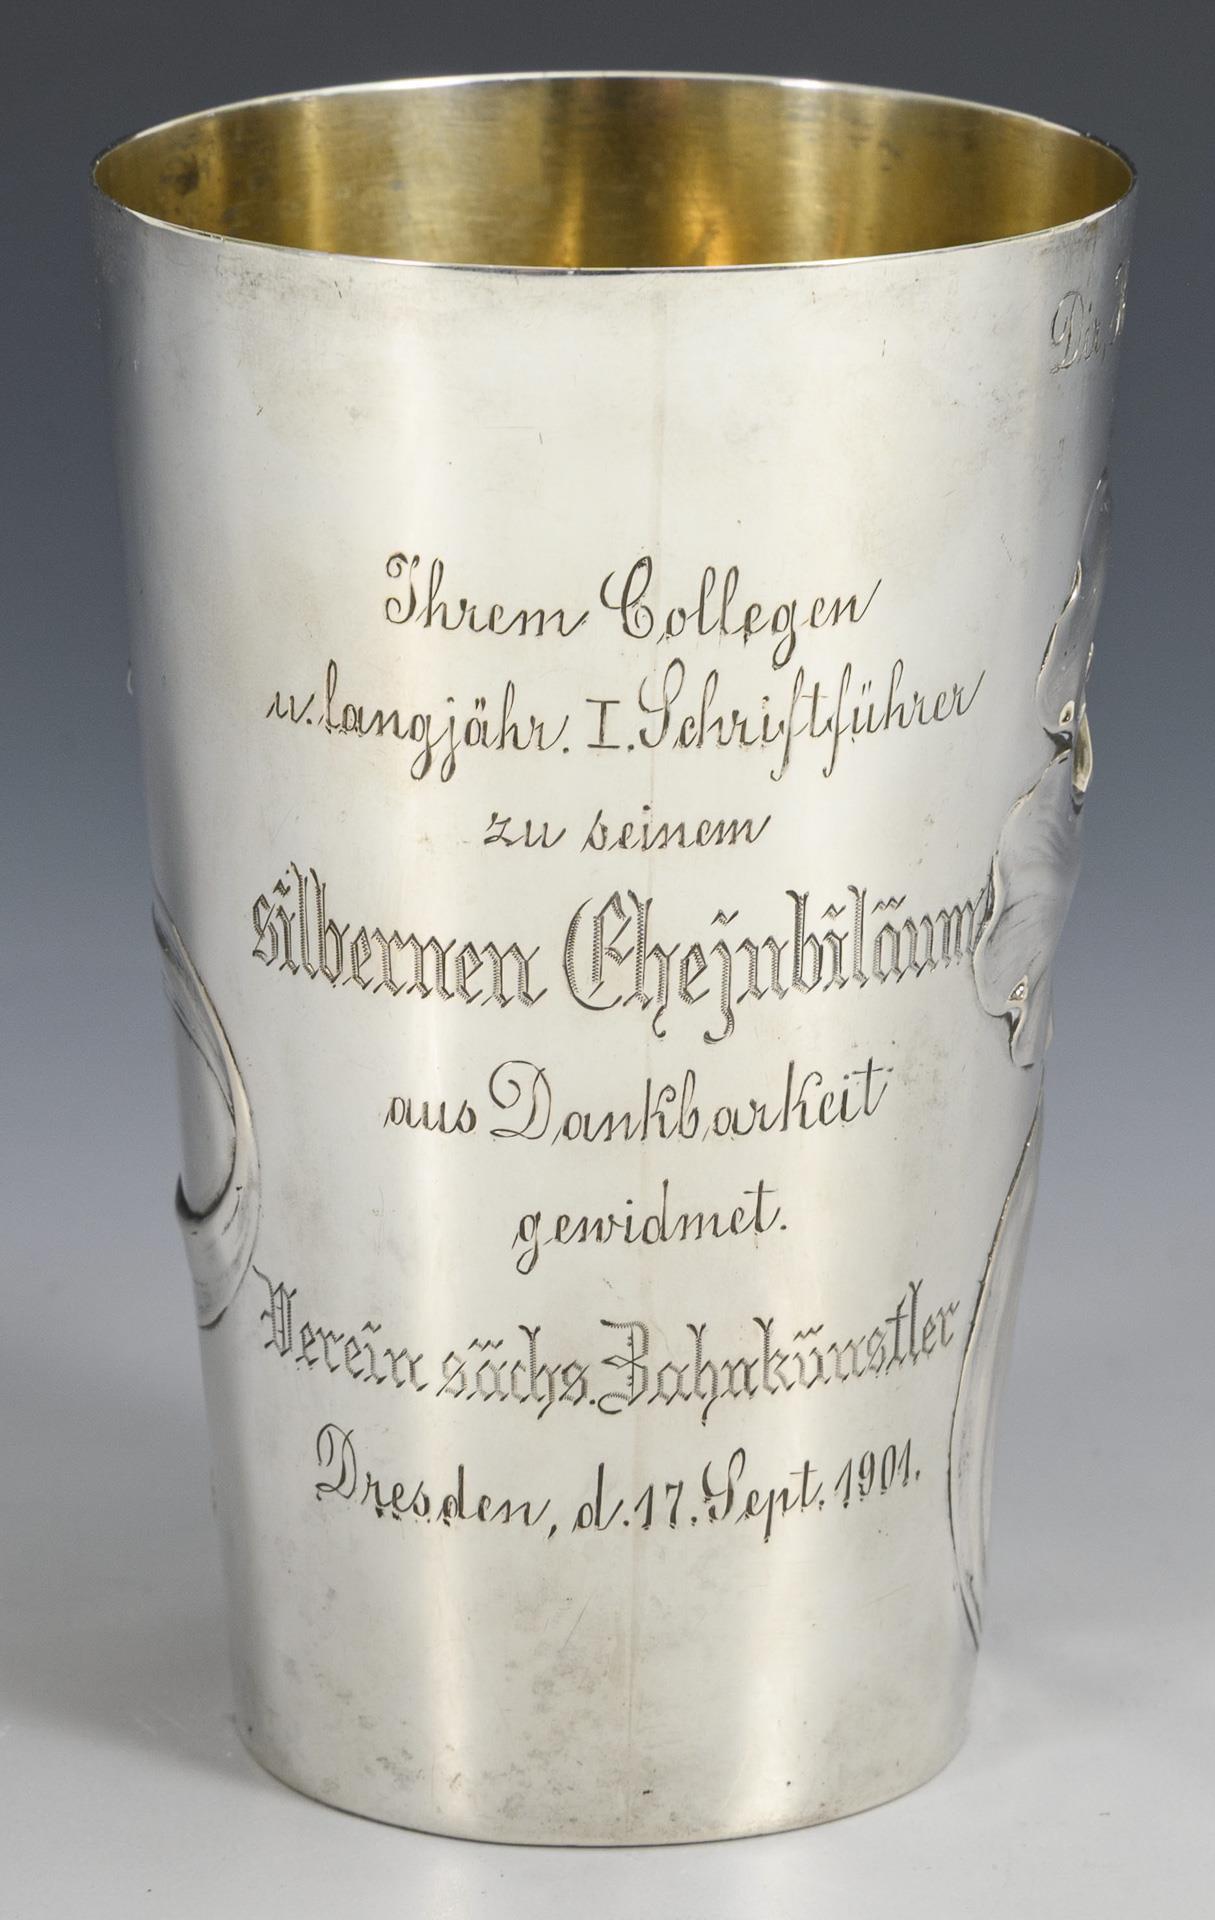 Dir.
Ihrem Collegen
u. langjähr. I. Schriftführer
zu seinem
silbernen Ehejubiläum
aus Dankbarkeit
gewidmet.
Verein sächs. Zahnkünstler
Dresden, d. 17. Sept. 1901.